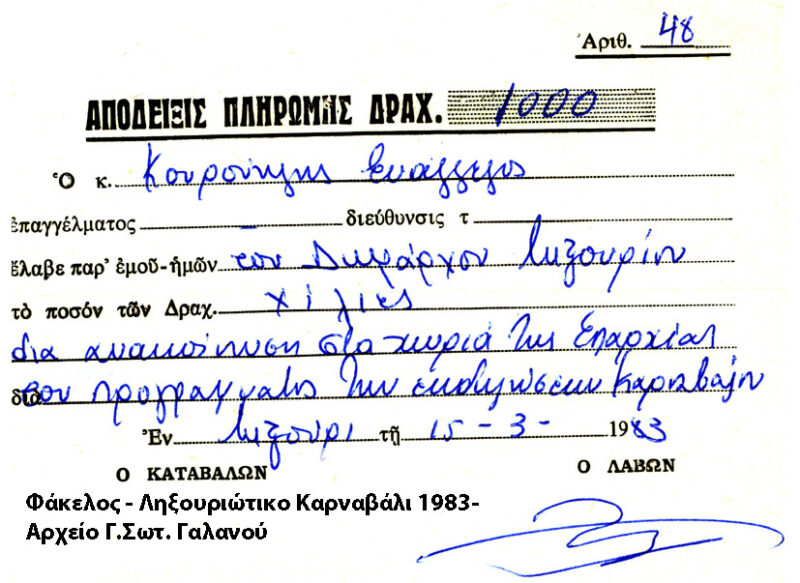 Ἀριθ. 48
ΑΠΟΔΕΙΞΙΣ ΠΛΗΡΩΜΗΣ ΔΡΑΧ. 1000
Ὁ κ. Κουρούκλης Ευάγγελος
ἐπαγγέλματος - διεύθυνσις τ
ἔλαβε παρ' ἐμοῦ-ἡμῶν του Δημάρχου Ληξουρίου
τὸ ποσόν τῶν Δραχ. χίλιες
δια ανακοίνωση στα χωριά της Επαρχίας
διὰ του προγράμματος των εκδηλώσεων Καρναβάλη
Ἐν Ληξούρι τῇ 15-3- 1983
Ο ΚΑΤΑΒΑΛΩΝ Ο ΛΑΒΩΝ
Φάκελος - Ληξουριώτικο Καρναβάλι 1983-
Αρχείο Γ.Σωτ. Γαλανού